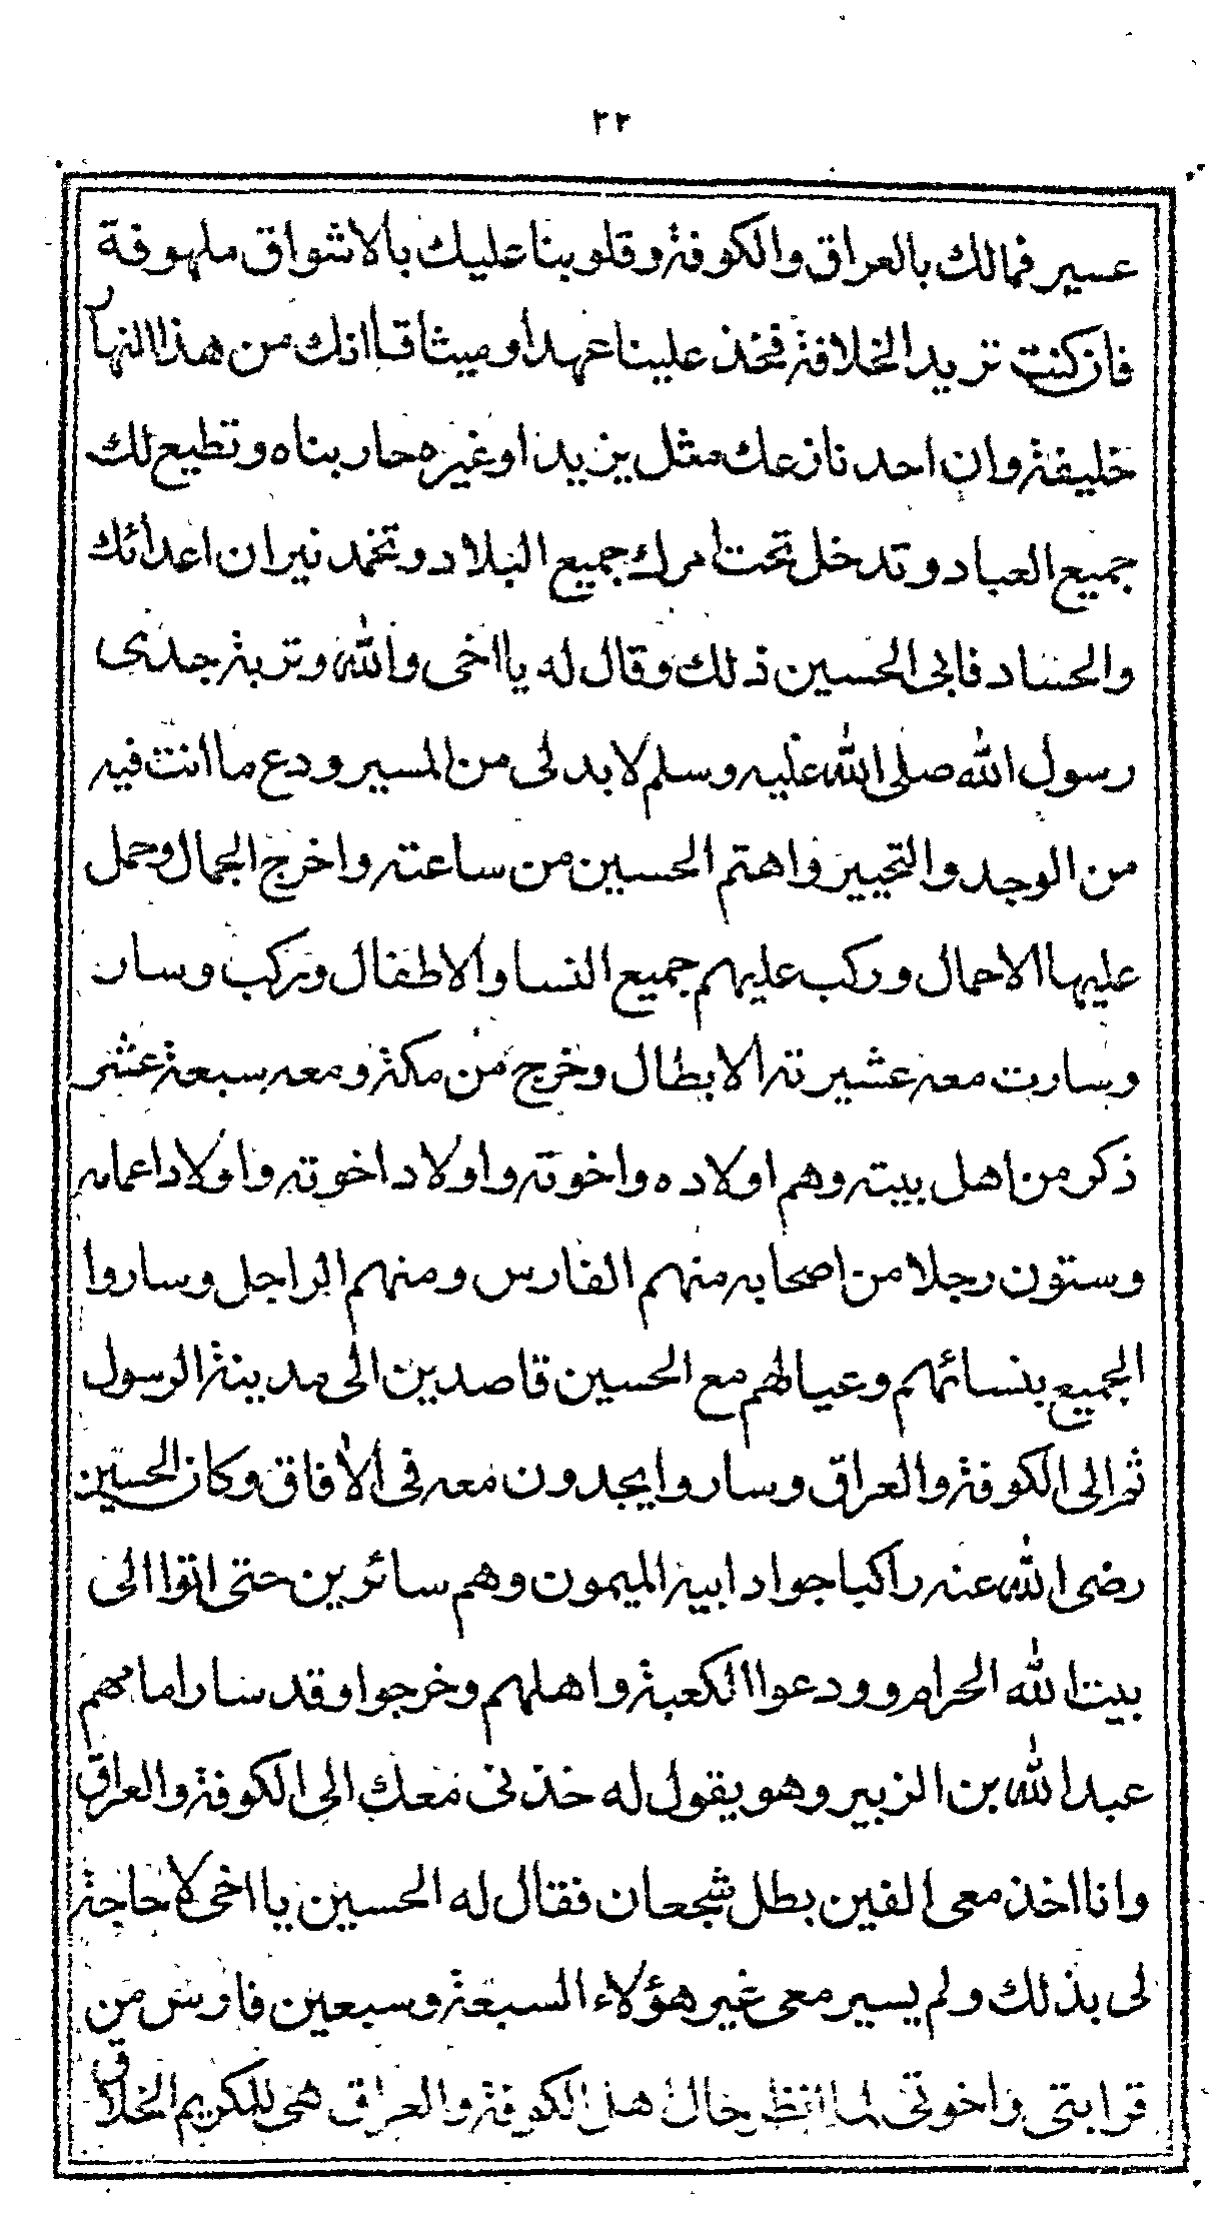 ٢٢
عسير فمالك بالعراق والكوفة وقلوبنا عليك بالاشواق ملهوفة
فان كنت تريد الخلافة فخذ علينا عهدا وميثاقا انك من هذا النهار
خليفة وان احد نازعك مثل يزيد او غيره حاربناه وتطيع لك
جميع العباد وتدخل تحت امرك جميع البلاد وتخمد نيران اعدائك
والحساد فابى الحسين ذلك وقال له يا اخى والله وتربة جدى
رسول الله صلى الله عليه وسلم لا بد لى من المسير ودع ما انت فيه
من الوجد والتحيير واهتم الحسين من ساعته واخرج الجمال وحمل
عليها الاحمال وركب عليهم جميع النسا والاطفال وركب وسار
وسارت معه عشيرته الابطال وخرج من مكة ومعه سبعة عشر
ذكر من اهل بيته وهم اولاده واخوته واولاد اخوته واولاد اعمامه
وستون رجلا من اصحابه منهم الفارس ومنهم الراجل وساروا
الجميع بنسائهم وعيالهم مع الحسين قاصدين الى مدينة الرسول
ثم الى الكوفة والعراق وساروا يجدون معه فى الافاق وكان الحسين
رضى الله عنه راكبا جواد ابيه الميمون وهم سائرين حتى اتوا الى
بيت الله الحرام وودعوا الكعبة واهلهم وخرجوا وقد سار امامهم
عبد الله بن الزبير وهو يقول له خذنى معك الى الكوفة والعراق
وانا اخذ معى الفين بطل شجعان فقال له الحسين يا اخى لا حاجة
لى بذلك ولم يسير معى غير هؤلاء السبعة وسبعين فارس من
قرابتى واخوتى لما انظر حال هذه الكوفة والعراق هى للكريم الخلاق